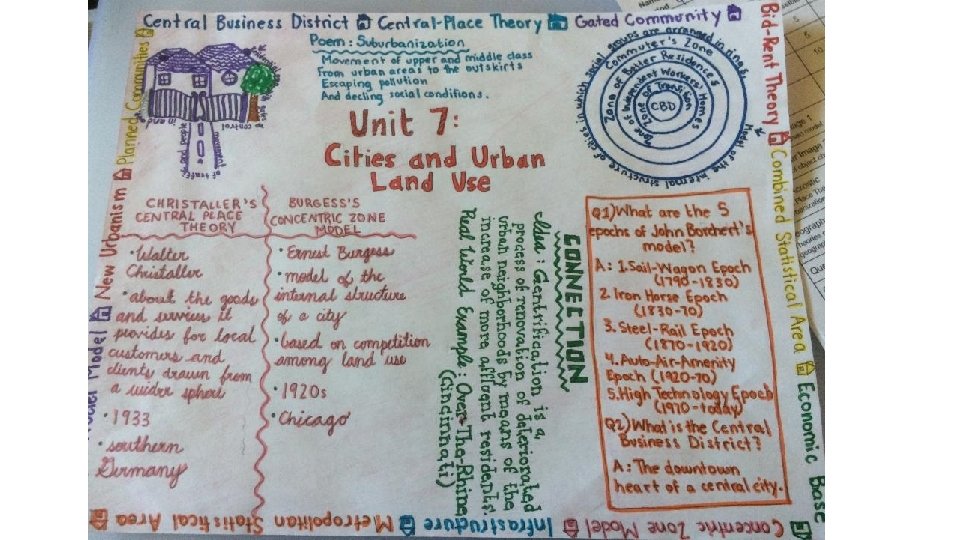 Central Business District Central-Place Theory Gated Community
Bid-Rent Theory Combined Statistical Area Economic Base
Concentric Zone Model Infrastructure Metropolitan Statistical Area
Model New Urbanism Planned Communities
Poem: Suburbanization
Movement of upper and middle class
From urban areas to the outskirts
Escaping pollution
And decling social conditions.
Unit 7:
Cities and Urban
Land Use
Model of the internal structure of cities in which social groups are arranged in rings.
Commuter's Zone
Zone of Better Residences
Zone of Independent Workers' Homes
Zone of Transition
CBD
CHRISTALLER'S
CENTRAL PLACE
THEORY
• Walter
Christaller
• about the goods
and services it
provides for local
customers and
clients drawn from
a wider sphere
• 1933
• southern
Germany
BURGESS'S
CONCENTRIC ZONE
MODEL
• Ernest Burgess
• model of the
internal structure
of a city
• based on competition
among land use
• 1920s
• Chicago
CONNECTION
Idea: Gentrification is a
process of renovation of deteriorated
urban neighborhoods by means of the
increase of more affluent residents.
Real World Example: Over-The-Rhine
(Cincinnati)
Q1) What are the 5
epochs of John Borchert's
model?
A: 1. Sail-Wagon Epoch
(1790-1830)
2. Iron Horse Epoch
(1830-70)
3. Steel-Rail Epoch
(1870-1920)
4. Auto-Air-Amenity
Epoch (1920-70)
5. High Technology Epoch
(1970-today)
Q2) What is the Central
Business District?
A: The downtown
heart of a central city.